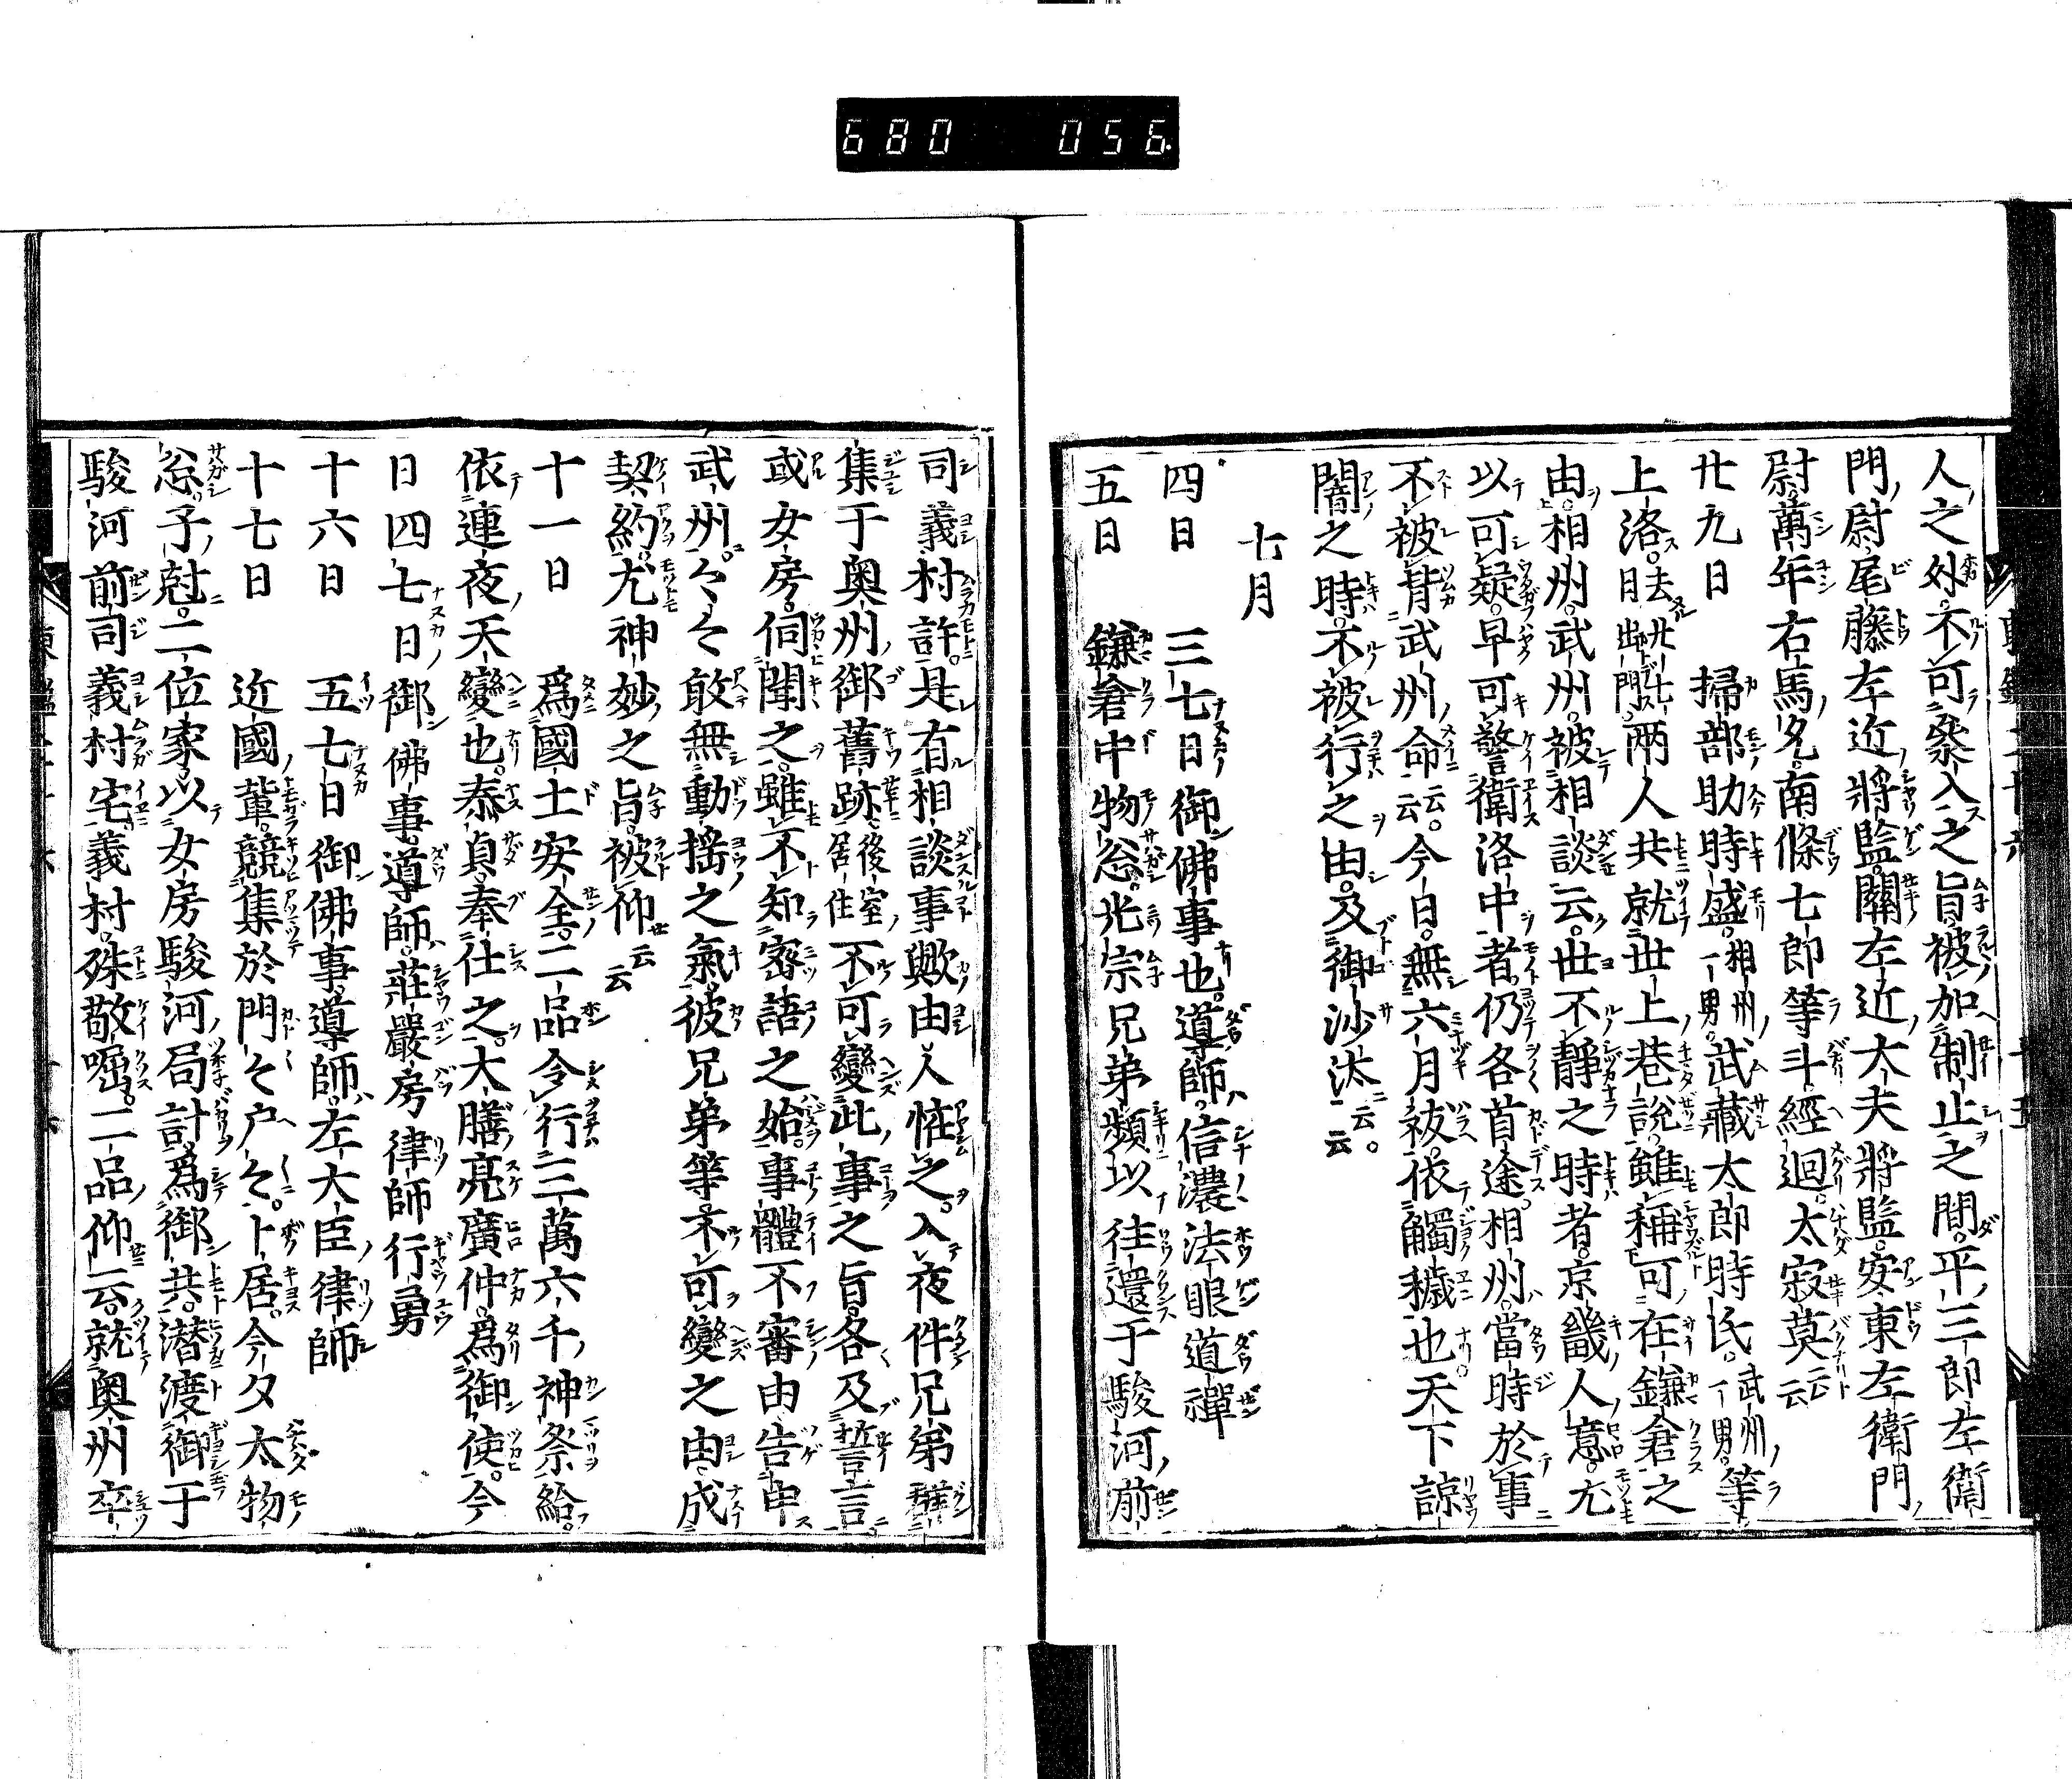 680 056
人之外不可參入之旨被加制止之間平三郎左衞
門尉尾藤左近將監關左近大夫將監安東左衞門
尉萬年右馬允南條七郎等斗經廻太寂莫云云
廿九日 掃部助時盛相州一男武藏太郎時氏武州一男等
上洛去廿七日出門兩人共就世上巷說雖稱可在鎌倉之
由相州武州被相談云世不靜之時者京畿人意尤
以可疑早可警衛洛中者仍各首途相州當時於事
不被背武州命云云今日無六月祓依觸穢也天下諒
闇之時不被行之由及御沙汰云云
七月
四日 三七日御佛事也導師信濃法眼道禪
五日 鎌倉中物忩光宗兄弟頻以往還于駿河前
司義村許是有相談事歟由人恠之入夜件兄弟
集于奧州御舊跡後室居住不可變此事之旨各及誓言
或女房伺聞之雖不知密語之始事體不審由告申
武州々々敢無動搖之氣彼兄弟等不可變之由成
契約尤神妙之旨被仰云云
十一日 爲國土安全二品令行三萬六千神祭給
依連夜天變也泰貞奉仕之大膳亮廣仲爲御使今
日四七日御佛事導師莊嚴房律師行勇
十六日 五七日御佛事導師左大臣律師
十七日 近國輩競集於門々戶々卜居今夕太物
忩子尅二位家以女房駿河局計爲御共潛渡御于
駿河前司義村宅義村殊敬啒二品仰云就奧州卒